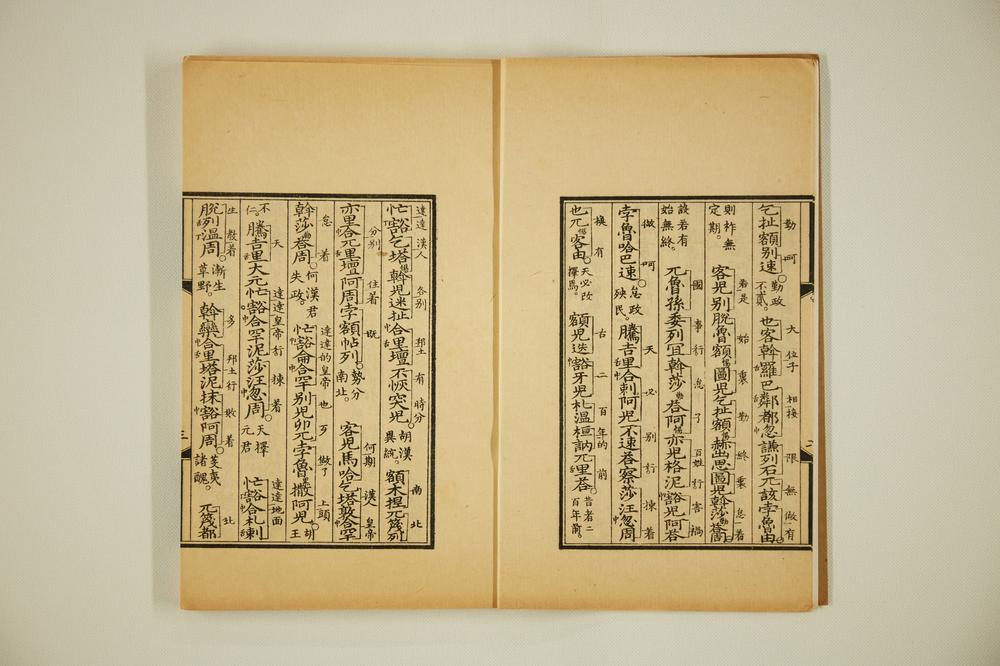 勤 呵 大 位子 相接 限 無 做 有
乞扯額別速。勤政不貳。也客斡羅巴鄰都忽謙列石兀該孛魯由。
若是 始 裏 勤 終 裏 怠 着
則祚無定期。客児別脫魯額圖児乞扯額赫出思圖児斡莎㳟周
國 事 行 怠 子 百姓 行 害 禍
設若有始無終。兀魯孫委列宜斡莎㳟阿亦児格泥豁児阿荅
做 呵 天 必 別 行 揀 着
孛魯哈巴速。怠政殃民。騰吉里合剌阿児不速㳟察莎汪忽周
換 有 古 二 百 年的 前
也兀客由。天必改擇焉。額児迭豁牙児札溫桓訥兀里荅。昔者二百年前。
達達 漢人 各別 邦土 有 時分 南 北
忙豁乞塔斡児迷扯合里壇不恢突児胡漢異統。額木捏兀篾列
分別 住着 既 何期 漢人 皇帝
亦里合兀里壇阿周孛額帖列。勢分南北。客児馬哈乞塔敦合罕
怠 着 達達的皇帝 也 歹 做了 上頭
斡莎㳟周。何漢君失政。忙豁侖合罕別児卯兀孛魯撒阿児。胡王
天 達達皇帝行 揀 着 達達地面
不仁。騰吉里大兀忙豁合罕泥莎汪忽周。天擇元君忙豁合札剌
生 發着 多 邦土行 敗 着 北
脫列溫周。漸生草野。斡欒合里塔泥抹豁阿周。芟夷諸醜。兀篾都
三